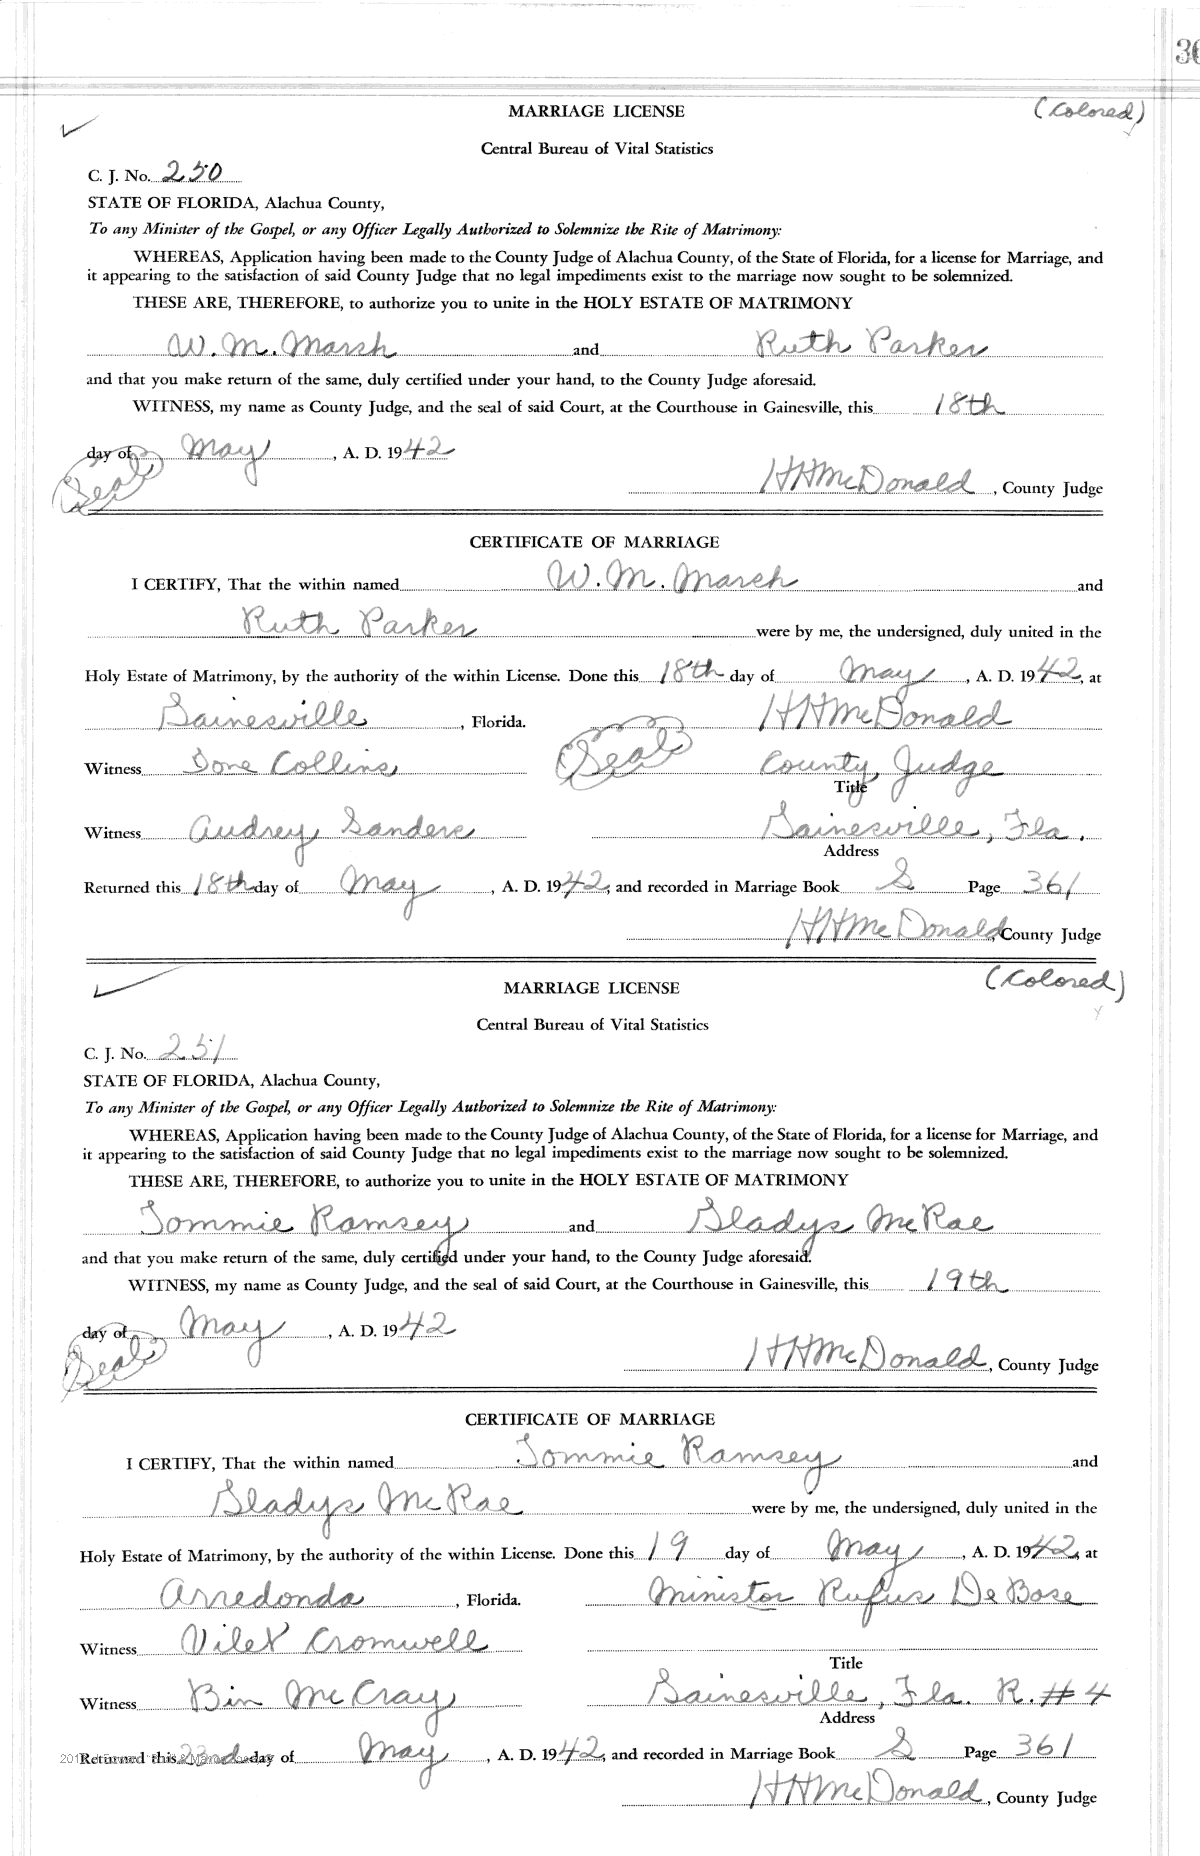 36
MARRIAGE LICENSE
(Colored)
Central Bureau of Vital Statistics
C. J. No. 250
STATE OF FLORIDA, Alachua County,
To any Minister of the Gospel, or any Officer Legally Authorized to Solemnize the Rite of Matrimony:
WHEREAS, Application having been made to the County Judge of Alachua County, of the State of Florida, for a license for Marriage, and
it appearing to the satisfaction of said County Judge that no legal impediments exist to the marriage now sought to be solemnized.
THESE ARE, THEREFORE, to authorize you to unite in the HOLY ESTATE OF MATRIMONY
W. M. Marsh and Ruth Parker
and that you make return of the same, duly certified under your hand, to the County Judge aforesaid.
WITNESS, my name as County Judge, and the seal of said Court, at the Courthouse in Gainesville, this 18th
day of May, A. D. 1942
(Seal) HHMcDonald, County Judge
CERTIFICATE OF MARRIAGE
I CERTIFY, That the within named W. M. Marsh and
Ruth Parker were by me, the undersigned, duly united in the
Holy Estate of Matrimony, by the authority of the within License. Done this 18th day of May, A. D. 1942, at
Gainesville, Florida. HHMcDonald
Witness Done Collins (Seal) County Judge
Title
Witness Audrey Sanders Gainesville, Fla.
Address
Returned this 18th day of May, A. D. 1942, and recorded in Marriage Book S Page 361
HHMcDonald, County Judge
MARRIAGE LICENSE
(Colored)
Central Bureau of Vital Statistics
C. J. No. 251
STATE OF FLORIDA, Alachua County,
To any Minister of the Gospel, or any Officer Legally Authorized to Solemnize the Rite of Matrimony:
WHEREAS, Application having been made to the County Judge of Alachua County, of the State of Florida, for a license for Marriage, and
it appearing to the satisfaction of said County Judge that no legal impediments exist to the marriage now sought to be solemnized.
THESE ARE, THEREFORE, to authorize you to unite in the HOLY ESTATE OF MATRIMONY
Tommie Ramsey and Gladys McRae
and that you make return of the same, duly certified under your hand, to the County Judge aforesaid.
WITNESS, my name as County Judge, and the seal of said Court, at the Courthouse in Gainesville, this 19th
day of May, A. D. 1942
(Seal) HHMcDonald, County Judge
CERTIFICATE OF MARRIAGE
I CERTIFY, That the within named Tommie Ramsey and
Gladys McRae were by me, the undersigned, duly united in the
Holy Estate of Matrimony, by the authority of the within License. Done this 19 day of May, A. D. 1942, at
Arredonda, Florida. Ministor Rufus DeBose
Witness Vilet Cromwell
Title
Witness Bin McCray Gainesville, Fla. R. #4
Address
Returned this 22nd day of May, A. D. 1942, and recorded in Marriage Book S Page 361
HHMcDonald, County Judge